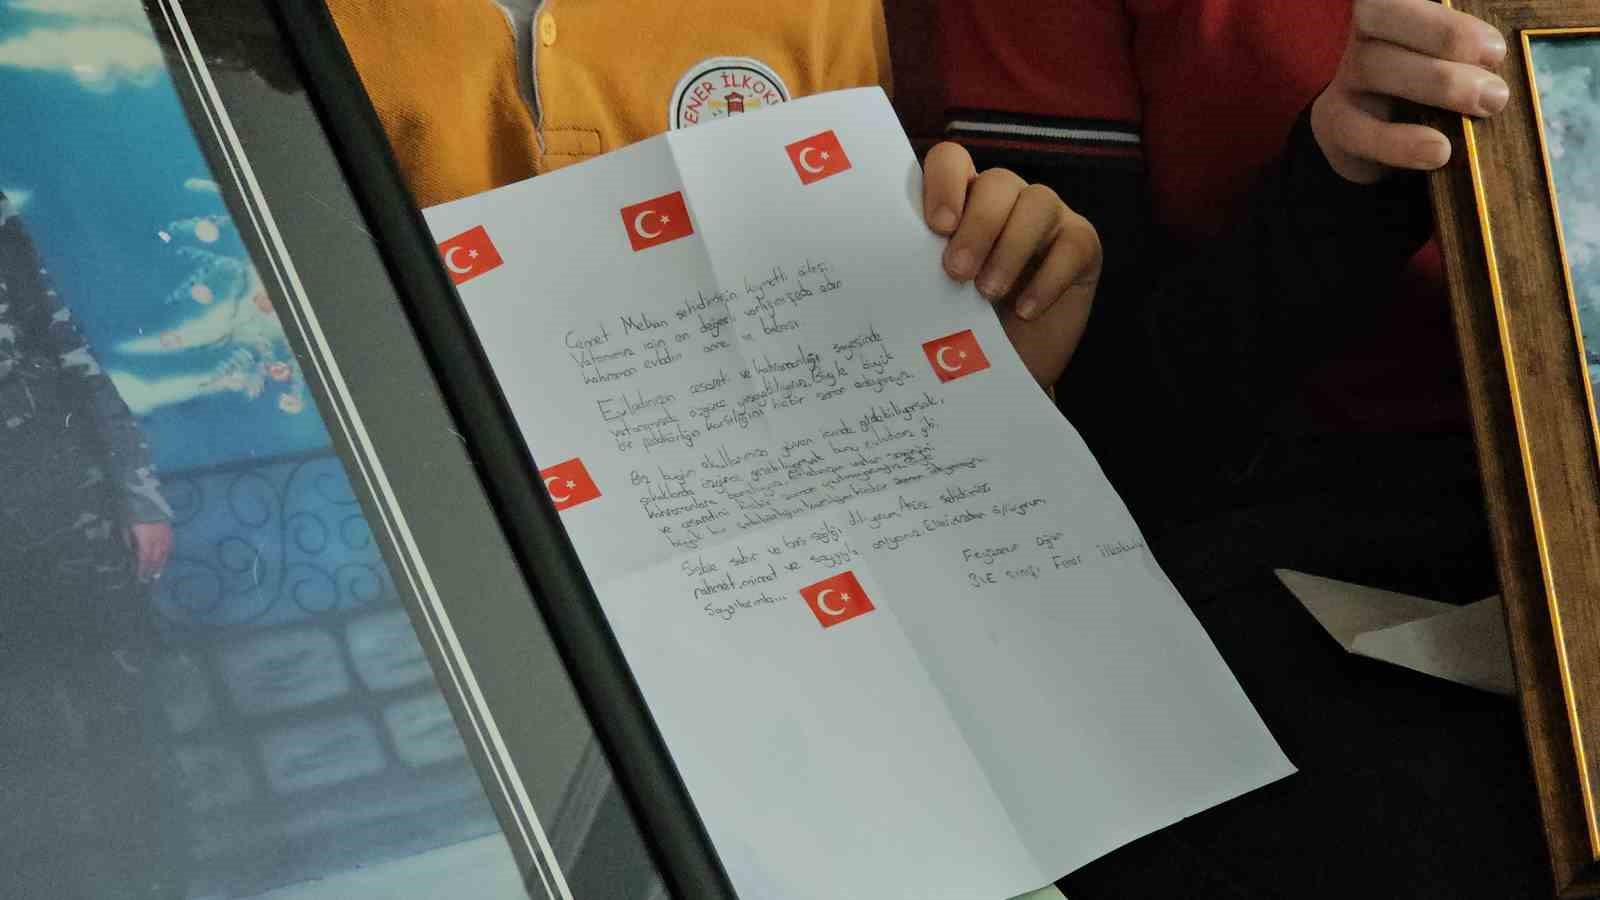 ENER İLKOKU
Cennet Mekan şehidimizin kıymetli ailesi;
Vatanımız için en değerli varlığını feda eden
kahraman evladın anne ve babası
Evladınızın cesareti ve kahramanlığı sayesinde
vatanımızda özgürce yaşayabiliyoruz. Böyle büyük
bir fedakarlığın karşılığını hiçbir zaman ödeyemeyiz.
Biz bugün okullarımıza güven içinde gidebiliyorsak,
sokaklarda özgürce gezebiliyorsak bunu evladınız gibi
kahramanlara borçluyuz. Evladınızın vatan sevgisini
ve cesaretini hiçbir zaman unutmayacağız.
büyük bir fedakarlığın karşılığını hiçbir zaman ödeyemeyiz.
Sizlere sabır ve baş sağlığı diliyorum. Aziz şehidimizi
rahmet, minnet ve saygıyla anıyoruz. Ellerinizden öpüyorum.
Saygılarımla...
Feyzanur
3/E sınıfı Fener ilkokulu